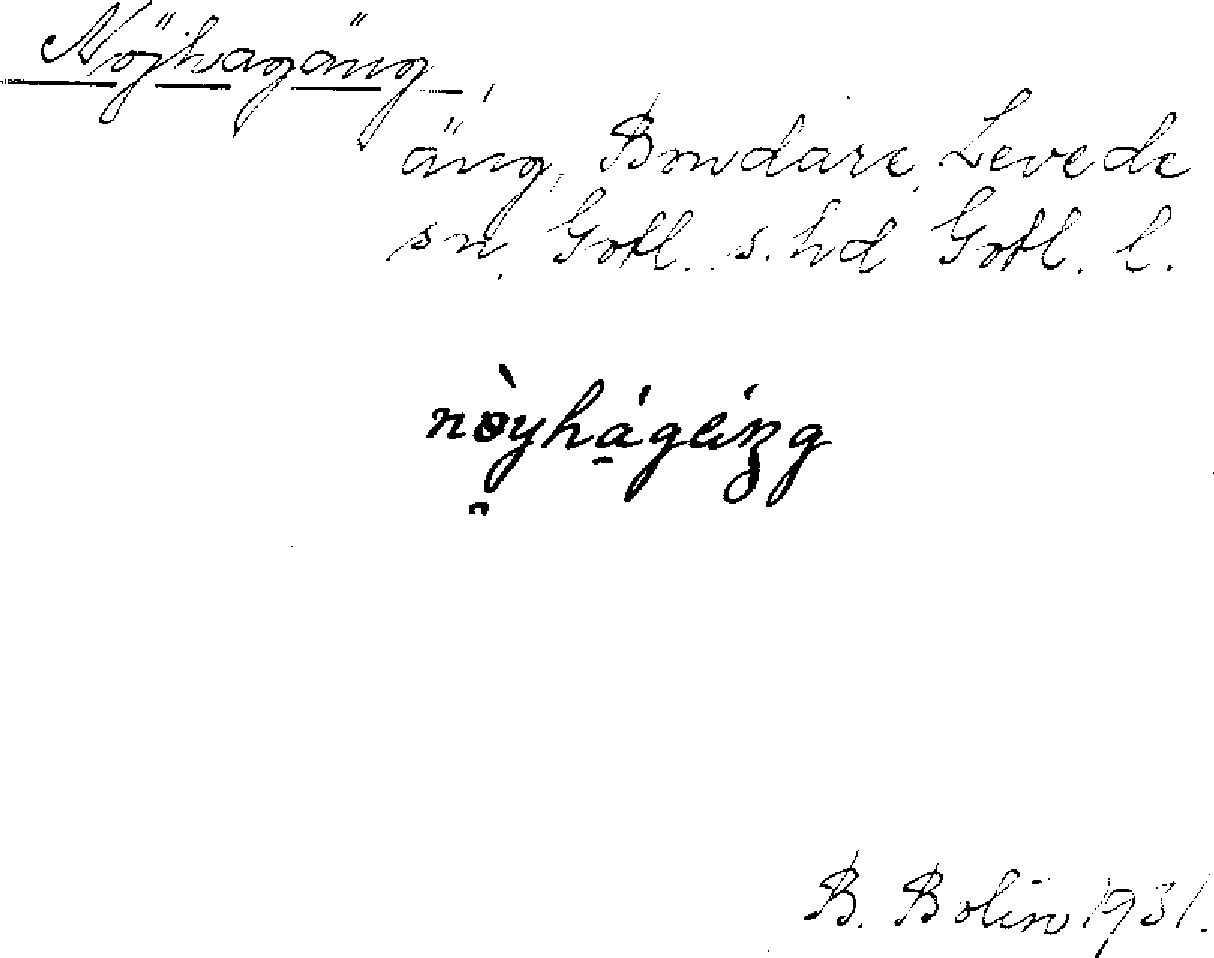 Nöjhagäng,
äng, Bondarve, Levede
sn. Gotl. s. hd Gotl. l.
B. Bolin 1931.